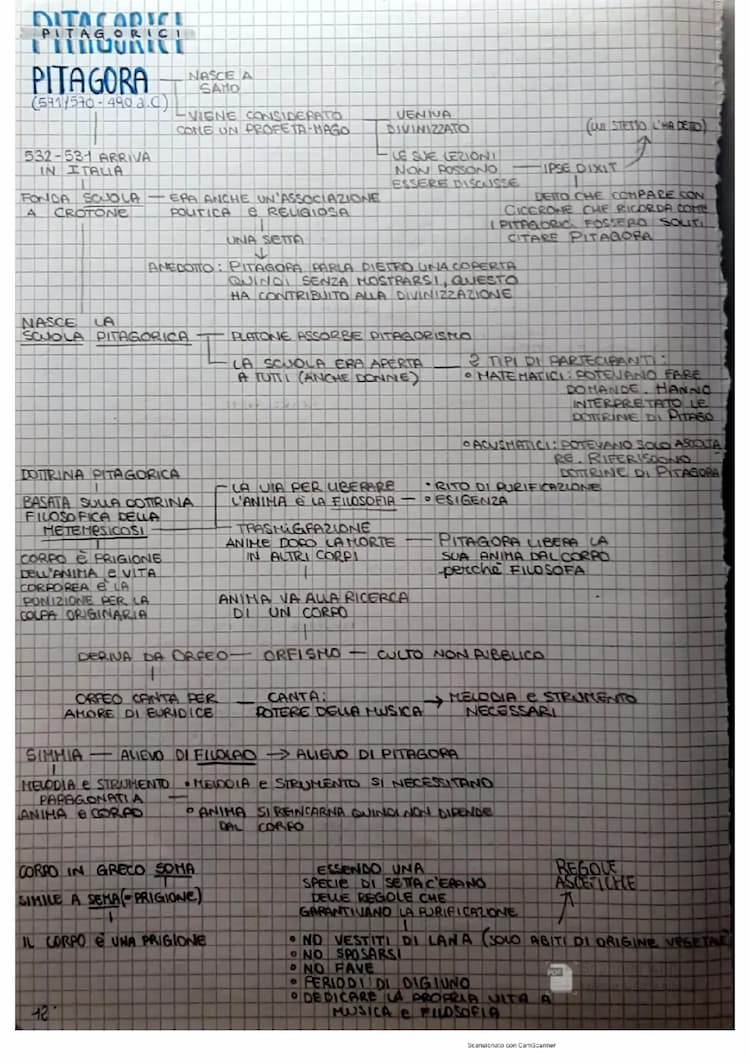 PITAGORICI
PITAGORICI
PITAGORA
(571/570 - 490 a.C)
NASCE A
SAMO
VIENE CONSIDERATO
COME UN PROFETA-MAGO
VENIVA
DIVINIZZATO
(LUI STESSO L'HA DETTO)
LE SUE LEZIONI
NON POSSONO
ESSERE DISCUSSE
IPSE DIXIT
DETTO CHE COMPARE CON
CICERONE CHE RICORDA COME
I PITAGORICI FOSSERO SOLITI
CITARE PITAGORA
532-531 ARRIVA
IN ITALIA
FONDA SCUOLA
A CROTONE
ERA ANCHE UN'ASSOCIAZIONE
POLITICA e RELIGIOSA
UNA SETTA
ANEDOTTO: PITAGORA PARLA DIETRO UNA COPERTA
QUINDI SENZA MOSTRARSI, QUESTO
HA CONTRIBUITO ALLA DIVINIZZAZIONE
NASCE LA
SCUOLA PITAGORICA
PLATONE ASSORBE PITAGORISMO
LA SCUOLA ERA APERTA
A TUTTI (ANCHE DONNE)
2 TIPI DI PARTECIPANTI:
• MATEMATICI: POTEVANO FARE
DOMANDE. HANNO
INTERPRETATO LE
DOTTRINE DI PITAGO
• ACUSMATICI: POTEVANO SOLO ASCOLTA
RE. RIFERISCONO
DOTTRINE DI PITAGORA
DOTTRINA PITAGORICA
BASATA SULLA DOTTRINA
FILOSOFICA DELLA
METEMPSICOSI
LA VIA PER LIBERARE
L'ANIMA È LA FILOSOFIA
• RITO DI PURIFICAZIONE
• ESIGENZA
TRASMIGRAZIONE
ANIME DOPO LA MORTE
IN ALTRI CORPI
PITAGORA LIBERA LA
SUA ANIMA DAL CORPO
perchè FILOSOFA
CORPO È PRIGIONE
DELL'ANIMA e VITA
CORPOREA È LA
PUNIZIONE PER LA
COLPA ORIGINARIA
ANIMA VA ALLA RICERCA
DI UN CORPO
DERIVA DA ORFEO — ORFISMO — CULTO NON PUBBLICO
ORFEO CANTA PER
AMORE DI EURIDICE
CANTA:
POTERE DELLA MUSICA
→ MELODIA e STRUMENTO
NECESSARI
SIMMIA — ALIEVO DI FILOLAO → ALIEVO DI PITAGORA
MELODIA e STRUMENTO
PARAGONATI A
ANIMA e CORPO
• MELODIA e STRUMENTO SI NECESSITANO
• ANIMA SI REINCARNA QUINDI NON DIPENDE
DAL CORPO
CORPO IN GRECO SOMA
SIMILE A SEMA (= PRIGIONE)
IL CORPO È UNA PRIGIONE
ESSENDO UNA
SPECIE DI SETTA C'ERANO
DELLE REGOLE CHE
GARANTIVANO LA PURIFICAZIONE
REGOLE
ASCETICHE
• NO VESTITI DI LANA (SOLO ABITI DI ORIGINE VEGETALE
• NO SPOSARSI
• NO FAVE
• PERIODI DI DIGIUNO
• DEDICARE LA PROPRIA VITA A
MUSICA e FILOSOFIA
12
Scansionato con CamScanner